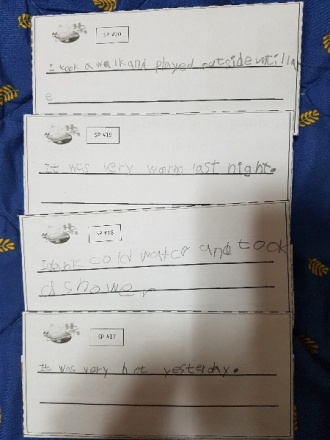 SP 420
I took a walk and played outside until la
e
SP 419
It was very warm last night.
SP 418
I drank cold water and took
a shower
SP 417
It was very hot yesterday.